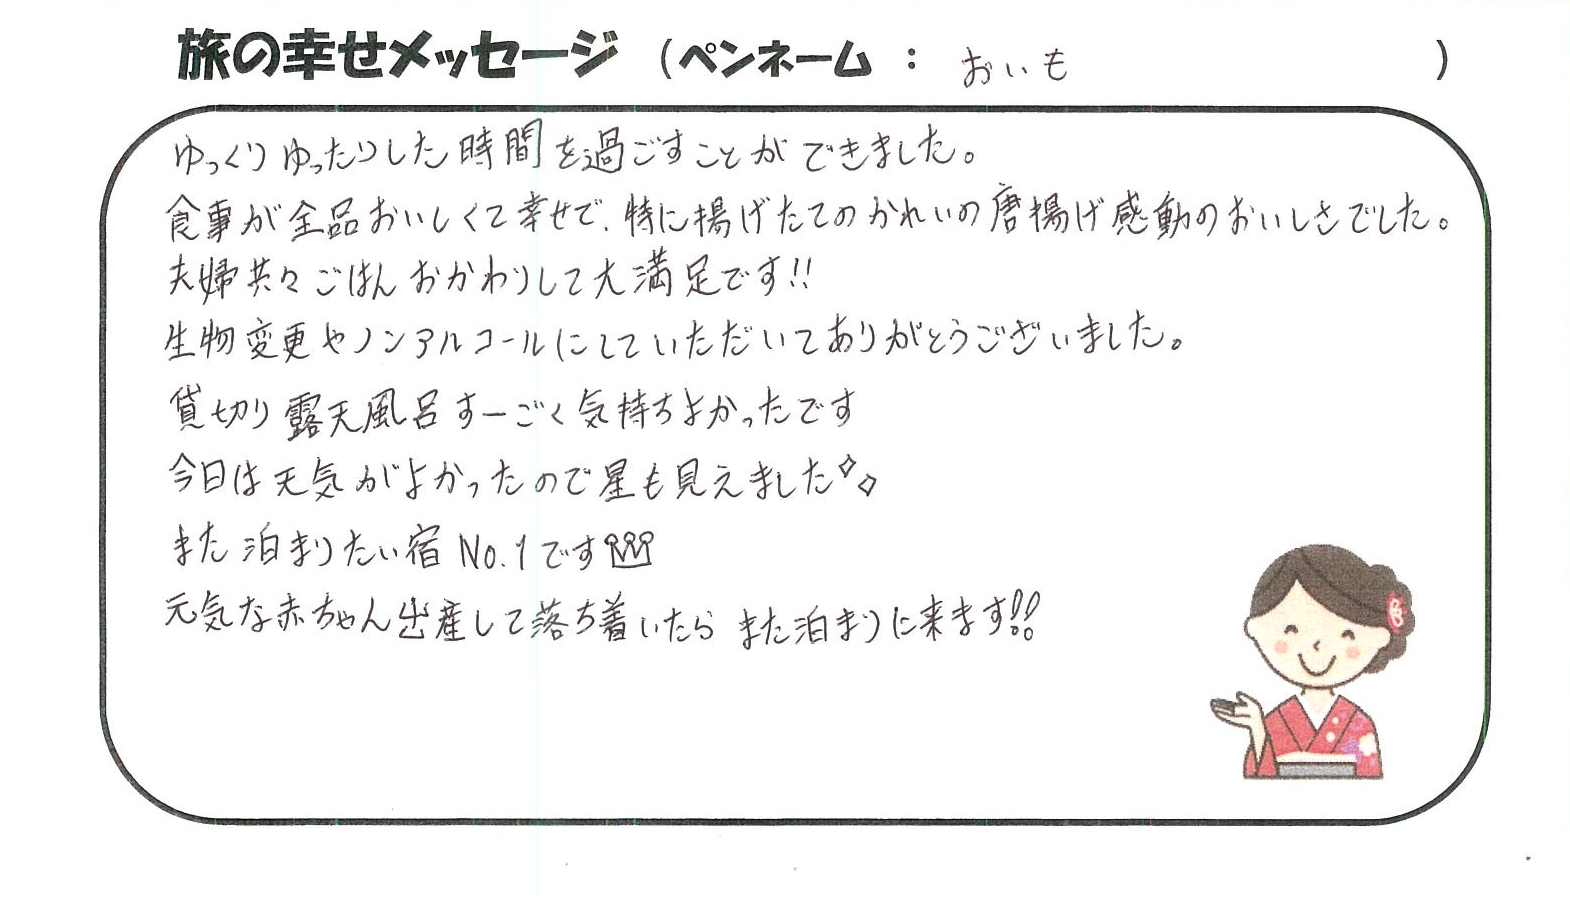 旅の幸せメッセージ (ペンネーム : おいも )
ゆっくりゆったりした時間を過ごすことができました。
食事が全品おいしくて幸せで、特に揚げたてのかれいの唐揚げ感動のおいしさでした。
夫婦共々ごはんおかわりして大満足です!!
生物変更やノンアルコールにしていただいてありがとうございました。
貸切り露天風呂すーごく気持ちよかったです
今日は天気がよかったので星も見えました
また泊まりたい宿No.1です
元気な赤ちゃん出産して落ち着いたらまた泊まりに来ます!!